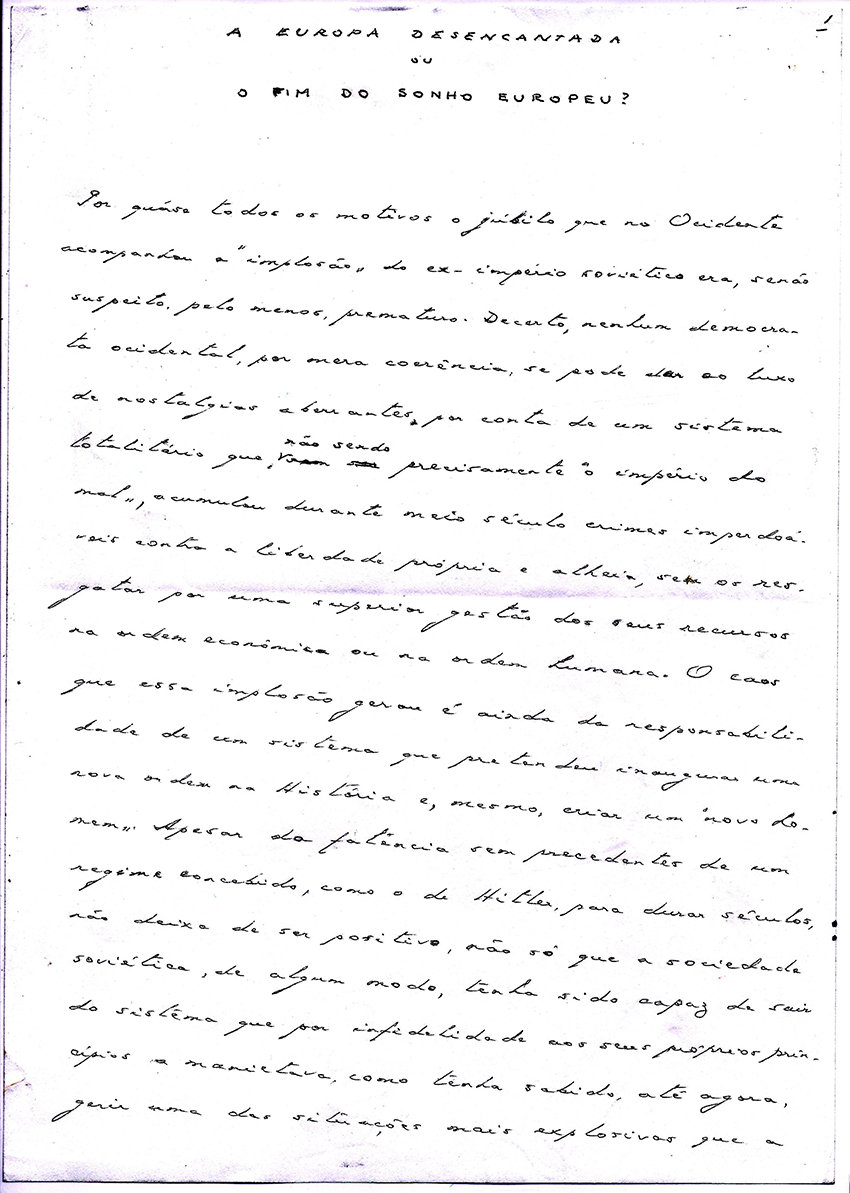 1
A EUROPA DESENCANTADA
OU
O FIM DO SONHO EUROPEU?
Por quáse todos os motivos o júbilo que no Ocidente
acompanhou a "implosão„ do ex-império soviético era, senão
suspeito, pelo menos, prematuro. Decerto, nenhum democra-
ta ocidental, por mera coerência, se pode dar ao luxo
de nostalgias aberrantes, por conta de um sistema
não sendo
totalitário que, precisamente "o império do
mal„, acumulou durante meio século crimes imperdoá-
veis contra a liberdade própria e alheia, sem os res-
gatar por uma superior gestão dos seus recursos
na ordem económica ou na ordem humana. O caos
que essa implosão gerou é ainda da responsabili-
dade de um sistema que pretendeu inaugurar uma
nova ordem na História e, mesmo, criar um "novo ho-
mem„. Apesar da falência sem precedentes de um
regime concebido, como o de Hitler, para durar séculos,
não deixa de ser positivo, não só que a sociedade
soviética, de algum modo, tenha sido capaz de sair
do sistema que por infidelidade aos seus próprios prin-
cípios a manietava, como tenha sabido, até agora,
gerir uma das situações mais explosivas que a